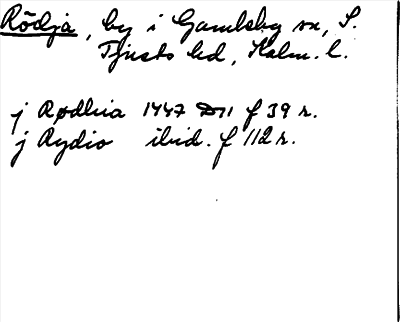 Rödja, by i Gamleby sn, S.
Tjusts hd, Kalm. l.
j Rødhia 1447 D11 f 39 r.
j Rydio ibid. f 112 r.